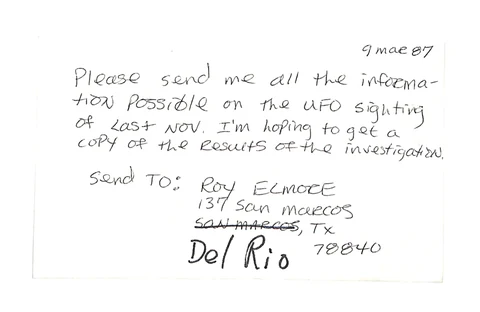 9 mar 87
Please send me all the informa-
tion possible on the UFO sighting
of Last Nov. I'm hoping to get a
copy of the Results of the investigation.
Send TO: ROY ELMORE
137 San Marcos
San Marcos, Tx
Del Rio 78840